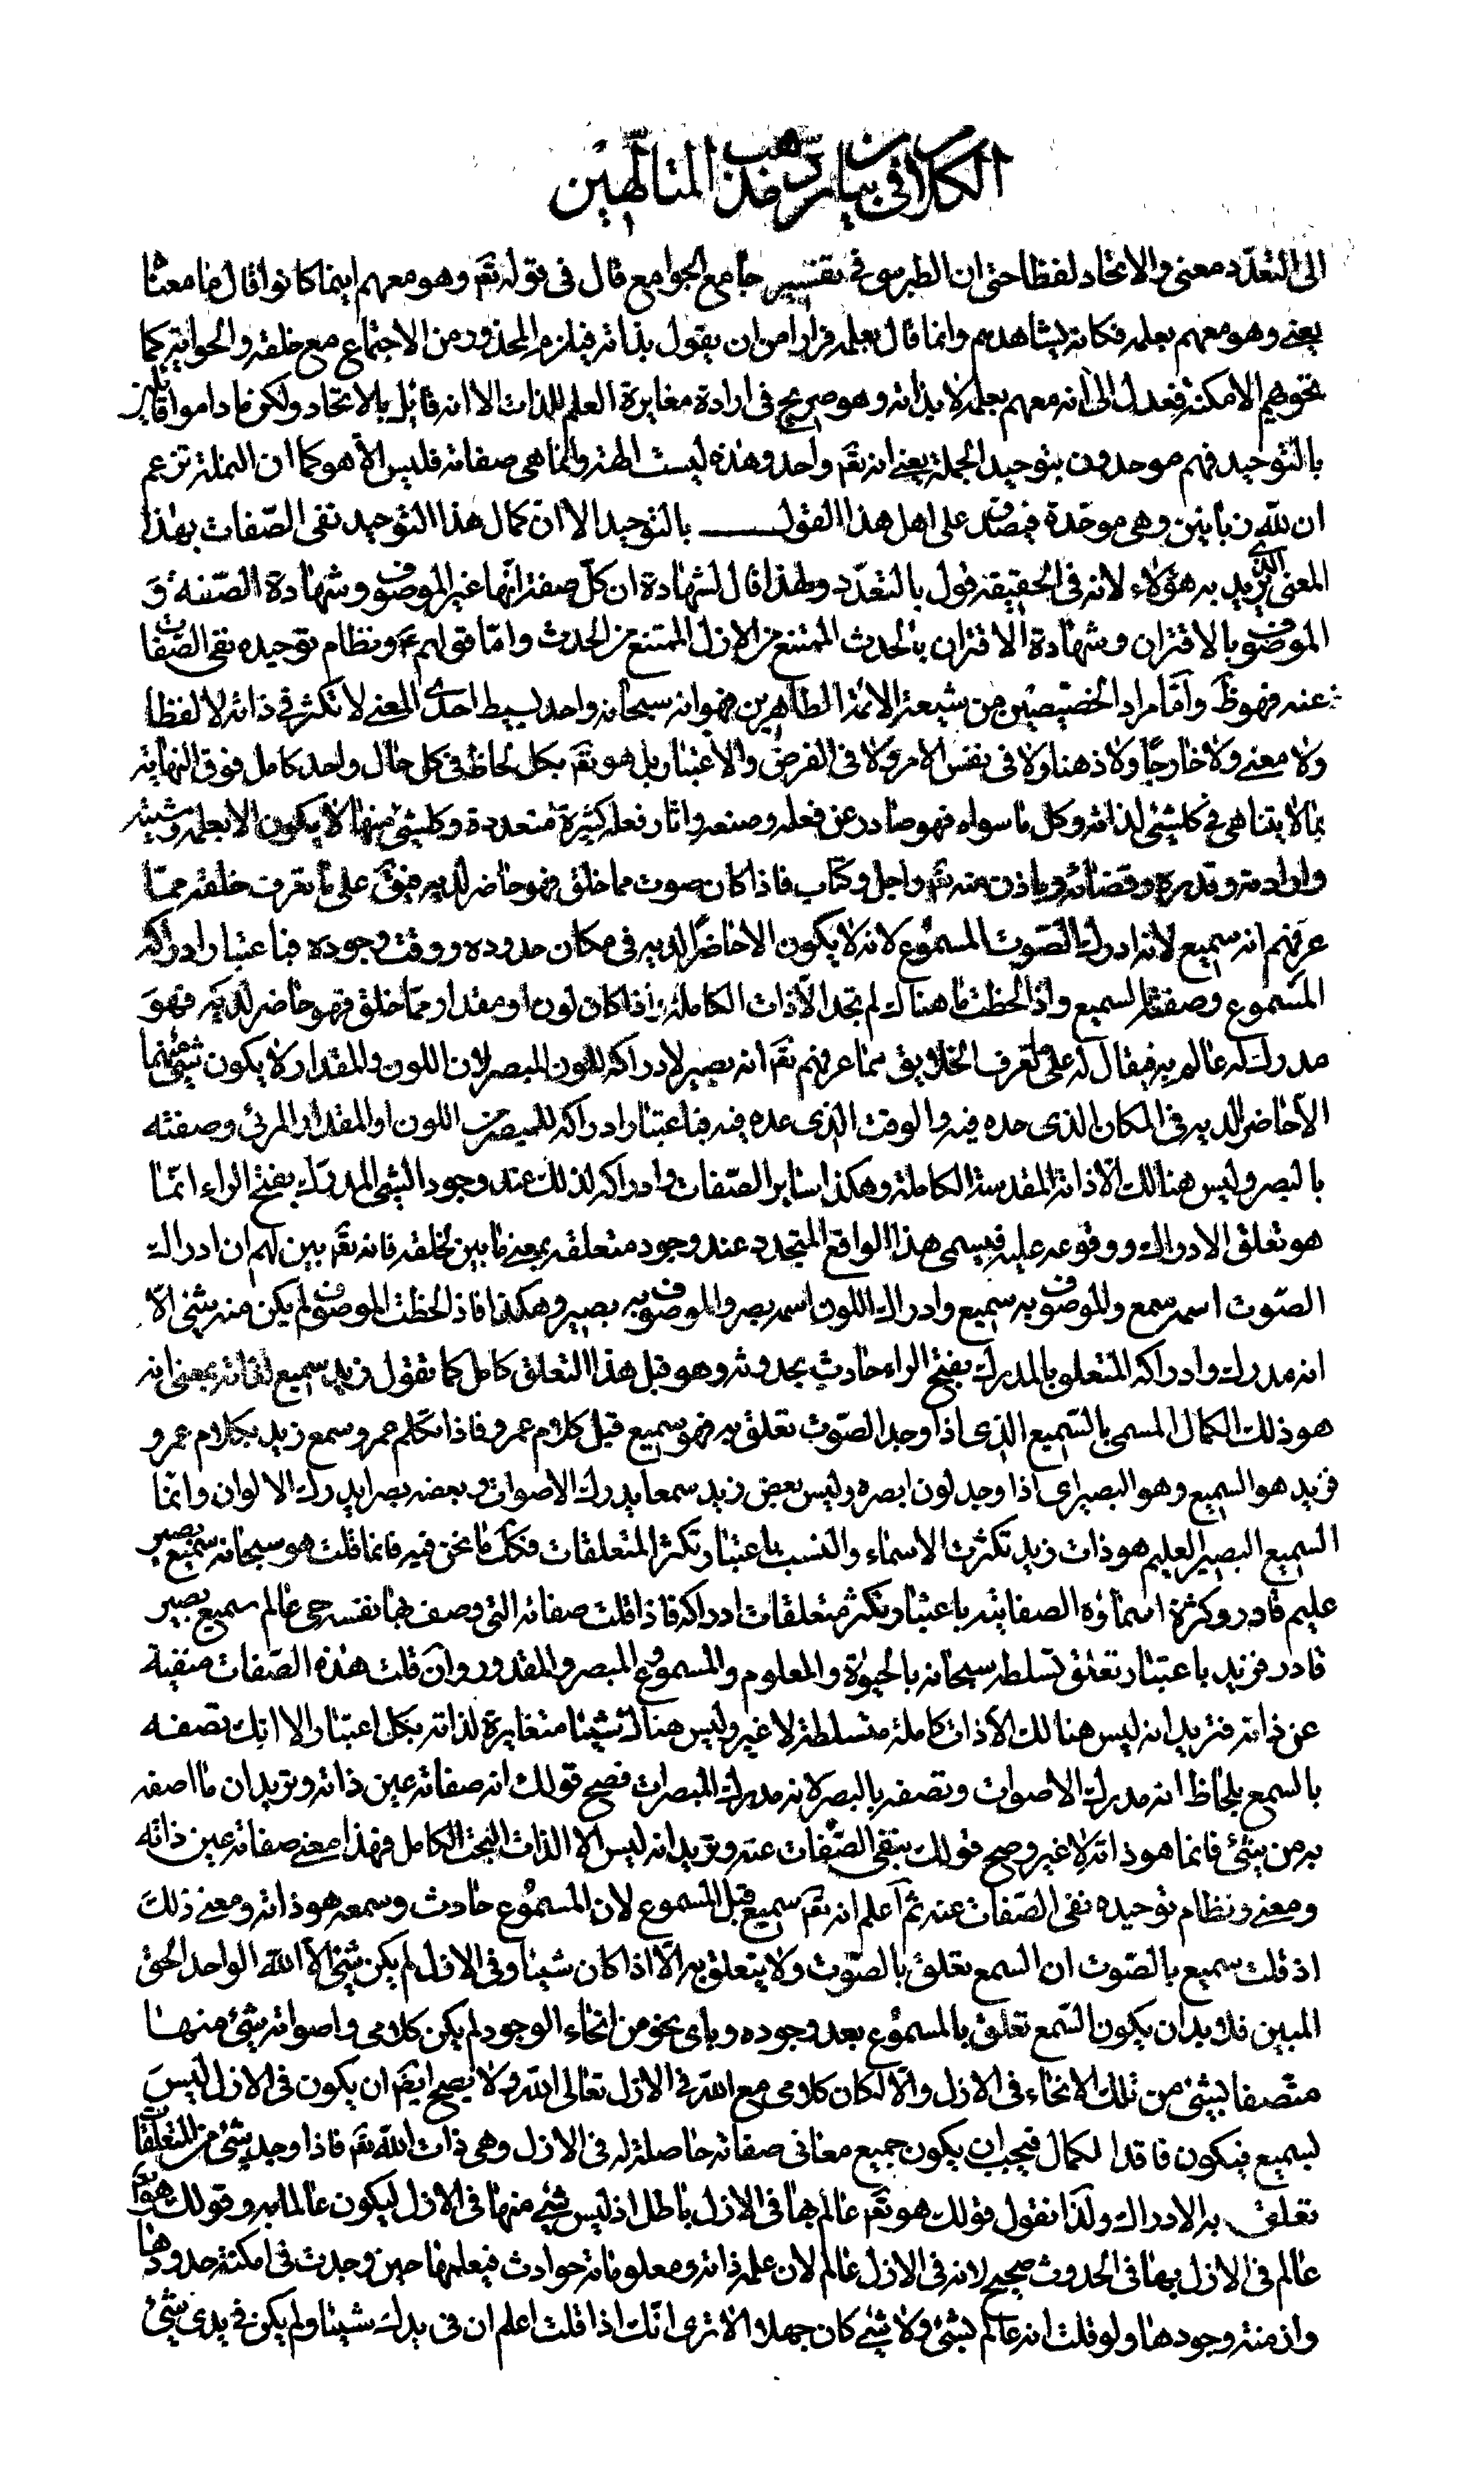 الكلام في بيان ردّ مذهب المتألّهين
الى التعدّد معنى والاتحاد لفظا حتى ان الطبرسى في تفسير جامع الجوامع قال فى قوله تعم وهو معهم اينما كانوا قال ما معناه
يعنى وهو معهم بعلمه فكانه يشاهدهم وانما قال بعلمه فرارا من ان يقول بذاته فيلزم المحذور من الاجتماع مع خلقه والحواية كما
تحويهم الامكنة فعدل الى انه معهم بعلمه لا بذاته وهو صريح فى ارادة مغايرة العلم للذات الا انه قائل بالاتحاد ولكن ما داموا قائلين
بالتوحيد فهم موحدون بتوحيد الجملة يعنى انه تعم واحد وهذه ليست الهة وانما هى صفاته فليس الا هو كما ان النملة تزعم
ان لله زبانيين وهى موحّدة فيصدق على اهل هذا القول بالتوحيد الا ان كمال هذا التوحيد نفى الصّفات بهذا
المعنى الذى يريد به هؤلاء لانه فى الحقيقة قول بالتعدّد ولهذا قال لشهادة ان كلّ صفة انّها غير الموصوف وشهادة الصّفة و
الموصوف بالاقتران وشهادة الاقتران بالحدث الممتنع من الازل الممتنع من الحدث وامّا قولهم ع ونظام توحيده نفى الصّفات
عنه فهو ظ وامّا مراد الخصّيصين من شيعة الائمة الطاهرين فهو انه سبحانه واحد بسيط احدى المعنى لا تكثر فى ذاته لا لفظا
ولا معنى ولا خارجًا ولا ذهنا ولا فى نفس الامر ولا فى الفرض والاعتبار بل هو تعم بكل لحاظ فى كل حال واحد كامل فوق النهاية
بما لا يتناهى فى كلشئ لذاته وكل ما سواه فهو صادر عن فعله وصنعه واثار فعله كثيرة متعددة وكلشئ منها لا يكون الا بعلمه ومشيته
وارادته وقدره وقضائه وباذن منه تعم واجل وكتاب فاذا كان صوت مما خلق فهو حاضر لديه فيق على ما تعرف خلقه ممّا
عرفهم انه سميع لانه ادرك الصّوت المسموع لانه لا يكون الا حاضرًا لديه فى مكان حدوده ووقت وجوده فباعتبار ادراكه
المسموع وصفته السميع واذا لحظت ما هنالك لم تجد الّا ذات الكاملة واذا كان لون او مقدار ممّا خلق فهو حاضر لديه فهو
مدرك له عالم به فيقال له على ما تعرف الخلايق مما عرفهم تعم انه بصير لادراكه للون المبصر لان اللون والمقدار لا يكون شئ منهما
الّا حاضر لديه فى المكان الذى حده فيه والوقت الذى عده فيه فباعتبار ادراكه للمبصر من اللون او المقدار المرئى وصفته
بالبصر وليس هنالك الّا ذاته المقدسة الكاملة وهكذا ساير الصّفات وادراكه لذلك عند وجود الشئ المدرَك بفتح الراء انّما
هو تعلق الادراك ووقوعه عليه فيسمى هذا الواقع المتجدد عند وجود متعلقه بمعنى ما بين لخلقه فانه تعم بين لهم ان ادراك
الصّوت اسمه سمع والموصوف به سميع وادراك اللون اسمه بصر والموصوف به بصير وهكذا فاذا لحظت الموصوف لم يكن منه شئ الّا
انه مدرك وادراكه المتعلق بالمدرك بفتح الراء حادث بحدوثه وهو قبل هذا التعلق كامل كما تقول زيد سميع لذاته بمعنى انه
هو ذلك الكمال المسمى بالسّميع الذى اذا وجد الصّوت تعلق به فهو سميع قبل كلام عمرو فاذا تكلم عمرو سمع زيد بكلام عمرو
فزيد هو السميع وهو البصير اى اذا وجد لون ابصره وليس بعض زيد سمعا يدرك الاصوات وبعضه بصرا يدرك الالوان وانّما
السميع البصير العليم هو ذات زيد تكثرت الاسماء والنسب باعتبار تكثر المتعلقات فكك ما نحن فيه فانما قلت هو سبحانه سميع بصير
عليم قادر وكثرة اسماؤه الصفاتيه باعتبار تكثر متعلقات ادراكه فاذا قلت صفاته التى وصف بها نفسه حى عالم سميع بصير
قادر فتريد باعتبار تعلق تسلطه سبحانه بالحيوة والمعلوم والمسموع والمبصر والمقدور وان قلت هذه الصّفات منفية
عن ذاته فتريد انه ليس هنالك الّا ذات كاملة متسلطة لا غير وليس هناك شيئا متغايرة لذاته بكل اعتبار الا انك تصفه
بالسمع بلحاظ انه مدرك الاصوات وتصفه بالبصر لانه مدرك المبصرات فصح قولك انه صفاته عين ذاته وتريد ان ما اصفه
به من شئ فانما هو ذاته لا غير وصح قولك بنفى الصّفات عنه وتريد انه ليس الا الذات البحت الكامل فهذا معنى صفاته عين ذاته
ومعنى ونظام توحيده نفى الصّفات عنه ثم اعلم انه تعم سميع قبل المسموع لان المسموع حادث وسمعه هو ذاته ومعنى ذلك
اذ قلت سميع بالصّوت ان السمع تعلق بالصّوت ولا يتعلق به الّا اذا كان شيئا وفى الازل لم يكن شئ الّا الله الواحد الحق
المبين فلا بد ان يكون السّمع تعلق بالمسموع بعد وجوده وباى نحو من انحاء الوجود لم يكن كلامى واصواته شئ منها
متّصفا بشئ من تلك الانحاء فى الازل والّا لكان كلامى مع الله فى الازل تعالى الله ولا يصح ايضم ان يكون فى الازل ليس
بسميع فيكون فاقدا لكمال فيجب ان يكون جميع معانى صفاته حاصلة له فى الازل وهى ذات الله تعم فاذا وجد شئ من المتعلقات
تعلق به الادراك ولذا نقول قولك هو تعم عالم بها فى الازل باطل اذ ليس شئ منها فى الازل ليكون عالما به وقولك هو تعم
عالم فى الازل بها فى الحدوث صحيح لانه فى الازل عالم لان علمه ذاته ومعلوماته حوادث فيعلمها حين وجدت فى امكنة حدودها
وازمنة وجودها ولو قلت انه عالم بشئ ولا شئ كان جهلا الا ترى انّك اذا قلت اعلم ان فى يدك شيئا ولم يكن فى يدى شئ